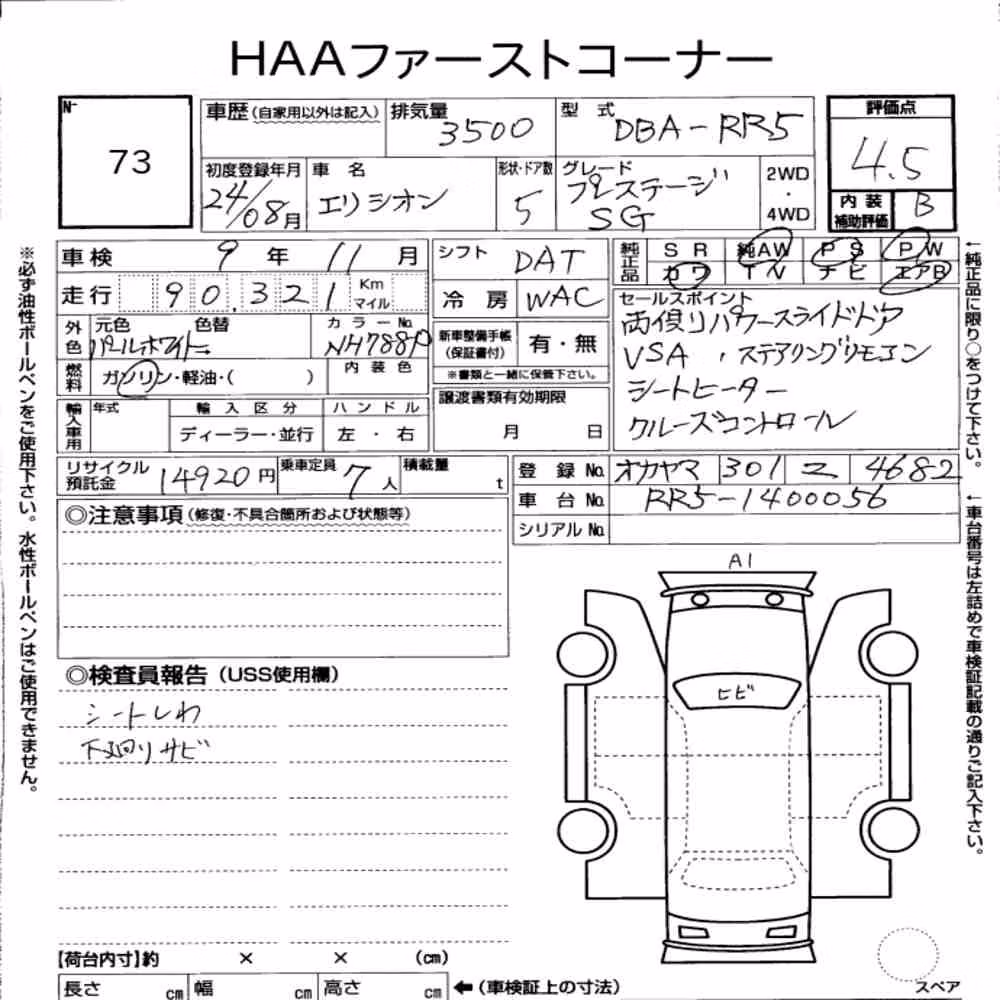 HAAファーストコーナー
№
73
車歴(自家用以外は記入)
排気量 3500
型式 DBA-RR5
評価点
4.5
内装補助評価 B
初度登録年月 24/08月
車名 エリシオン
形状・ドア数 5
グレード プレステージ SG
2WD・4WD
車検 9年 11月
シフト DAT
純正品 SR 純AW PS PW
カワ TN ナビ エアB
走行 90,321 Km マイル
冷房 WAC
セールスポイント
両側パワースライドドア
VSA、ステアリングリモコン
シートヒーター
クルーズコントロール
外色 元色 パールホワイト 色替
カラーNo. NH788P
新車整備手帳(保証書付) 有・無
※書類と一緒に保管下さい。
燃料 ガソリン・軽油・( )
内装色
譲渡書類有効期限
月 日
輸入車用 年式 輸入区分 ハンドル
ディーラー・並行 左・右
リサイクル預託金 14920円
乗車定員 7人
積載量 t
登録No. オカヤマ 301 ニ 4682
車台No. RR5-1400056
シリアルNo.
◎注意事項(修復・不具合箇所および状態等)
◎検査員報告(USS使用欄)
シートしわ
下廻りサビ
A1
ヒビ
【荷台内寸】約 × × (cm)
長さ cm 幅 cm 高さ cm ←(車検証上の寸法)
スペア
※必ず油性ボールペンをご使用下さい。水性ボールペンはご使用できません。
←純正品に限り○をつけて下さい。
←車台番号は左詰めで車検証記載の通りご記入下さい。